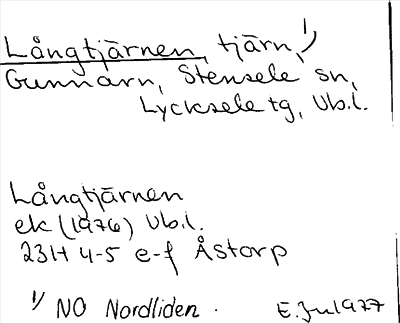 Långtjärnen, tjärn,¹⁾
Gunnarn, Stensele sn,
Lycksele tg, Vb.l.
Långtjärnen
ek (1976) Vb.l.
23H 4-5 e-f Åstorp
¹⁾ NO Nordliden.
E.Ju 1977